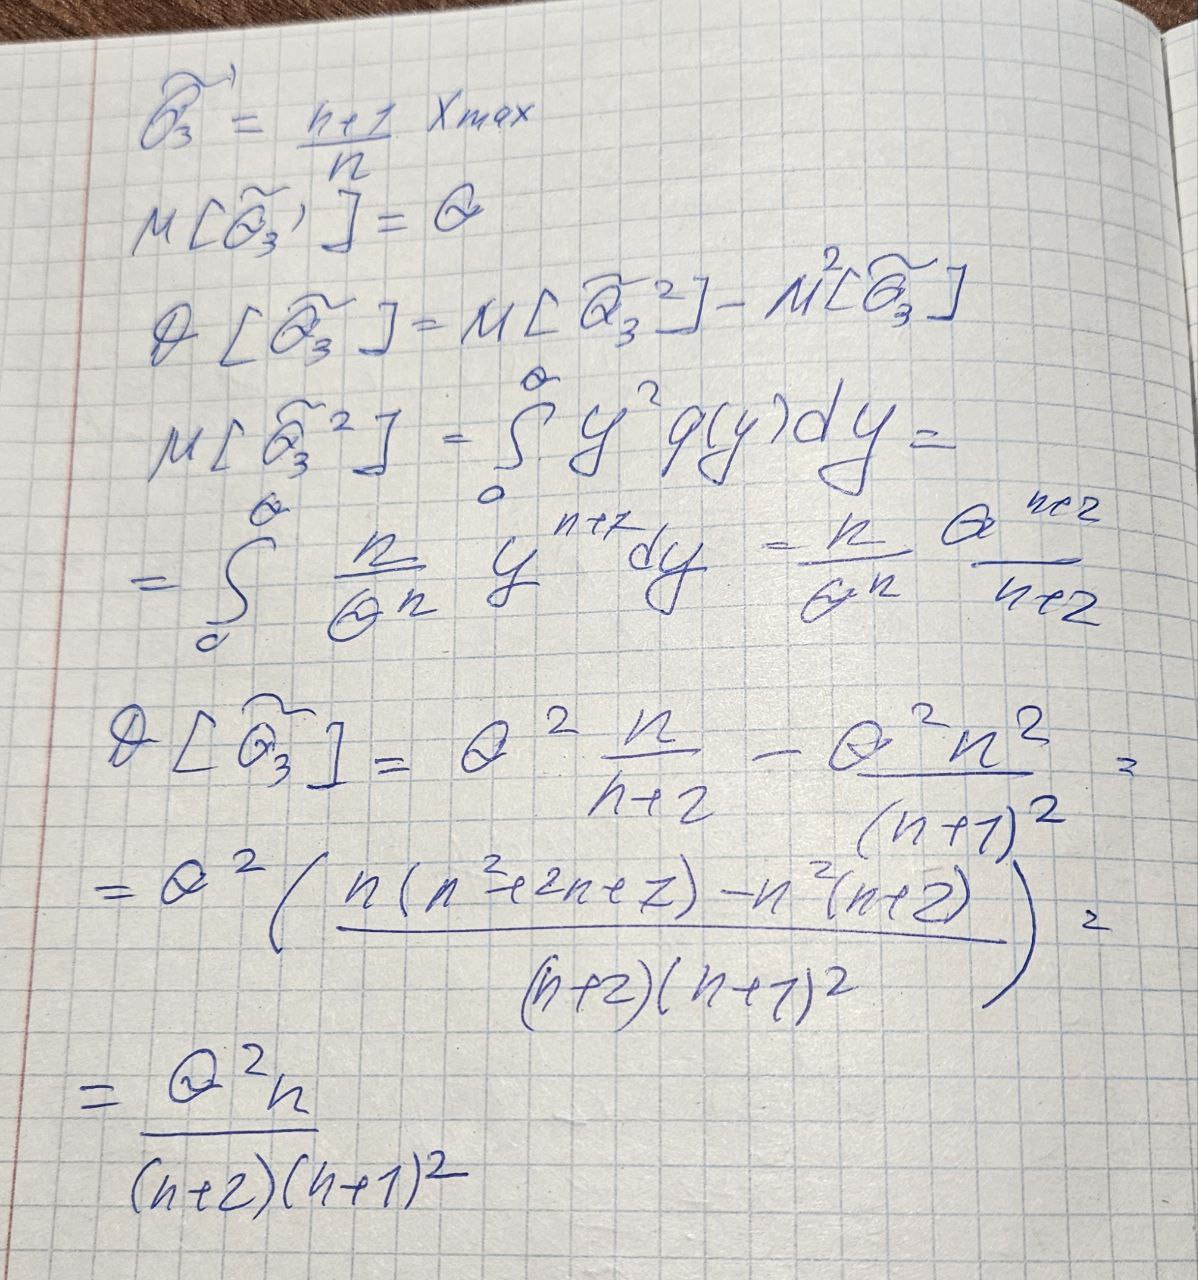 θ̃₃' = (n+1)/n Xmax
M[θ̃₃'] = θ
D[θ̃₃] = M[θ̃₃²] - M²[θ̃₃]
M[θ̃₃²] = ∫₀^θ y² g(y)dy =
= ∫₀^θ n/θⁿ yⁿ⁺¹ dy = n/θⁿ θⁿ⁺²/(n+2)
D[θ̃₃] = θ² n/(n+2) - θ²n²/(n+1)² =
= θ² ( (n(n²+2n+1) - n²(n+2))/((n+2)(n+1)²) ) =
= θ²n/((n+2)(n+1)²)